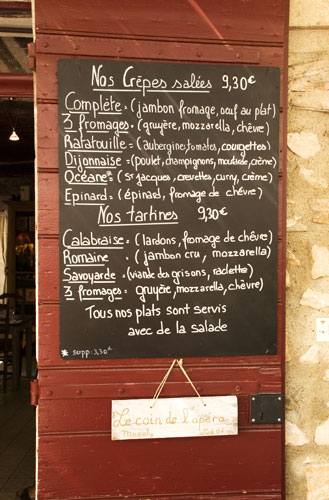 Nos Crêpes salées 9,30€
Complète = (jambon fromage, oeuf au plat)
3 fromages = (gruyère, mozzarella, chèvre)
Ratatouille = (aubergine, tomates, courgettes)
Dijonnaise = (poulet, champignons, moutarde, crème)
Océane = (St jacques, crevettes, curry, crème)
Epinard = (épinard, fromage de chèvre)
Nos tartines 9,30€
Calabraise = (lardons, fromage de chèvre)
Romaine = (jambon cru, mozzarella)
Savoyarde = (viande des grisons, raclette)
3 fromages = gruyère, mozzarella, chèvre)
Tous nos plats sont servis
avec de la salade
* supp: 3,30€
Le coin de l'apéro